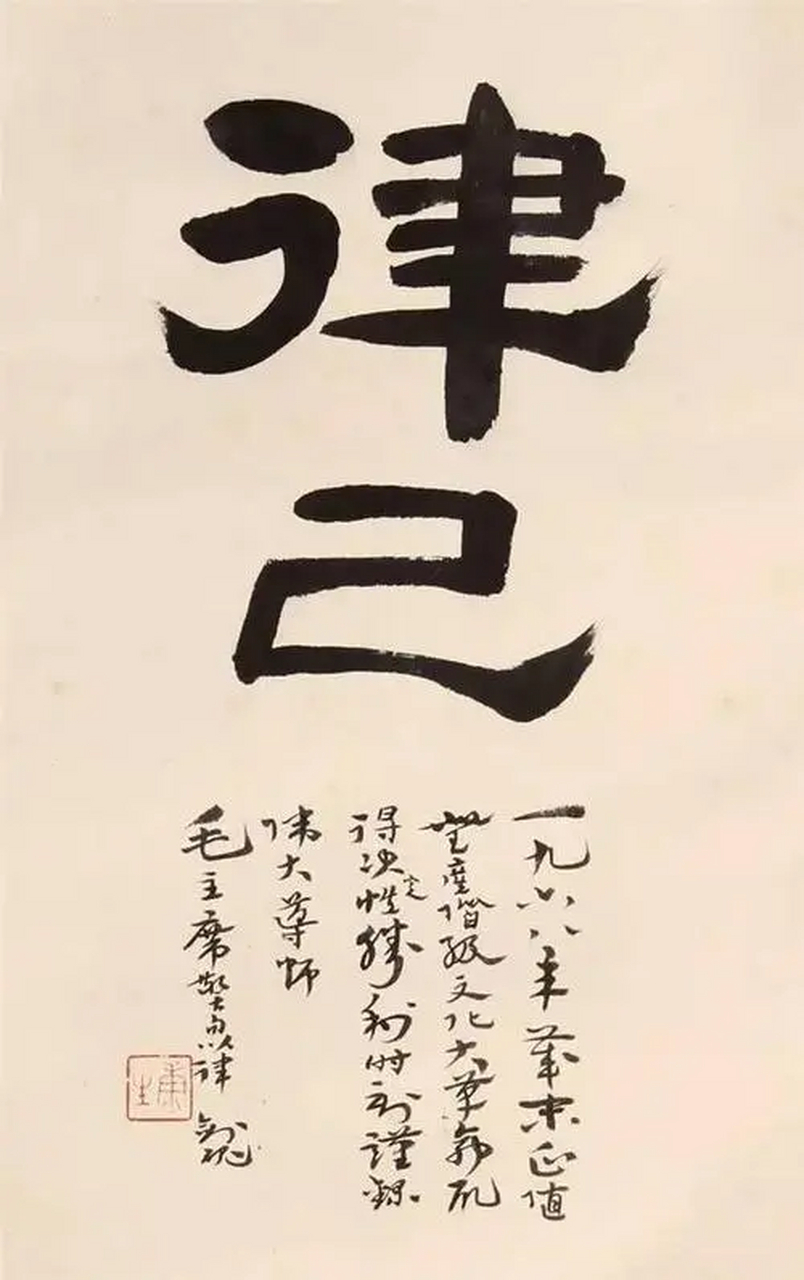 律己
一九六八年歲末正值
無產階級文化大革命取
得决定性勝利時刻謹錄
偉大導師
毛主席警句以律
康生